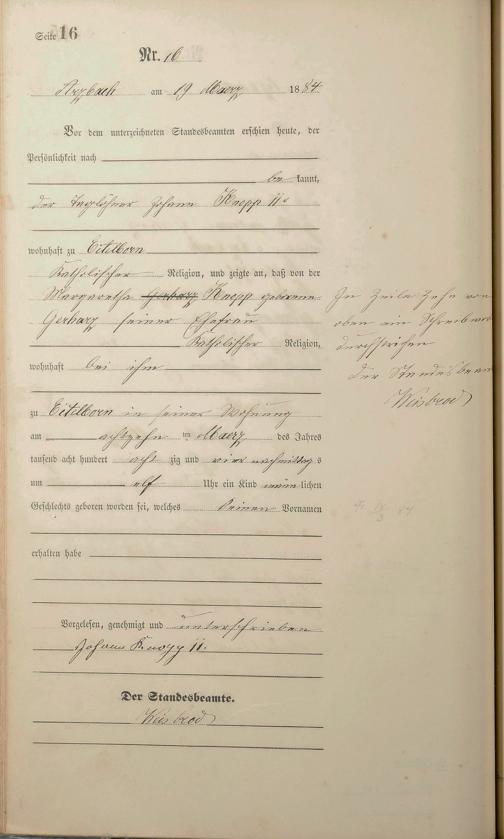 Seite 16
Nr. 16
Arzbach am 19 Maerz 1884.
Vor dem unterzeichneten Standesbeamten erschien heute, der
Persönlichkeit nach
bekannt,
der Taglöhner Johann Knopp IIr
wohnhaft zu Eitelborn
Katholischer Religion, und zeigte an, daß von der
Margaretha Gerharz Knopp geborene
Gerharz seiner Ehefrau
Katholischer Religion,
wohnhaft bei ihm
zu Eitelborn in seiner Wohnung
am achtzehn ten Maerz des Jahres
tausend acht hundert acht zig und vier nachmittags
um elf Uhr ein Kind männlichen
Geschlechts geboren worden sei, welches keinen Vornamen
erhalten habe
Vorgelesen, genehmigt und unterschrieben
Johann Knopp II.
Der Standesbeamte.
Weisbrod
In Zeile Zehn von
oben ein
durchstrichen
Der Standesbeam
Weisbrod